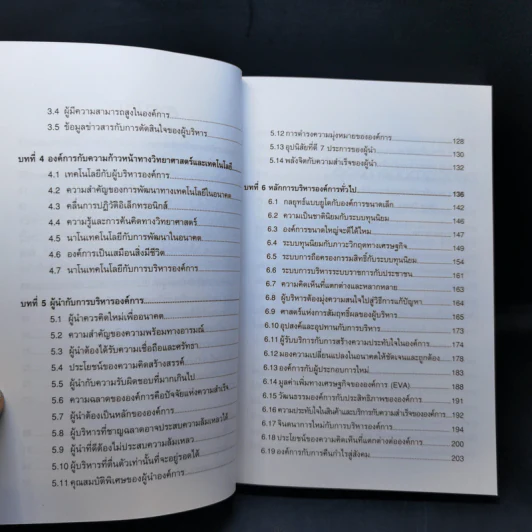 3.4 ผู้มีความสามารถสูงในองค์การ
3.5 ข้อมูลข่าวสารกับการตัดสินใจของผู้บริหาร
บทที่ 4 องค์การกับความก้าวหน้าทางวิทยาศาสตร์และเทคโนโลยี
4.1 เทคโนโลยีกับผู้บริหารองค์การ
4.2 ความสำคัญของการพัฒนาทางเทคโนโลยีในอนาคต
4.3 คลื่นการปฏิวัติอิเล็กทรอนิกส์
4.4 ความรู้และการค้นคิดทางวิทยาศาสตร์
4.5 นาโนเทคโนโลยีกับการพัฒนาในอนาคต
4.6 องค์การเป็นเสมือนสิ่งมีชีวิต
4.7 นาโนเทคโนโลยีกับการบริหารองค์การ
บทที่ 5 ผู้นำกับการบริหารองค์การ
5.1 ผู้นำควรคิดใหม่เพื่ออนาคต
5.2 ความสำคัญของความพร้อมทางอารมณ์
5.3 ผู้นำต้องได้รับความเชื่อถือและศรัทธา
5.4 ประโยชน์ของความคิดสร้างสรรค์
5.5 ผู้นำกับความรับผิดชอบที่มากเกินไป
5.6 ความฉลาดขององค์การคือปัจจัยแห่งความสำเร็จ
5.7 ผู้นำต้องเป็นหลักขององค์การ
5.8 ผู้บริหารที่ชาญฉลาดอาจประสบความล้มเหลวได้
5.9 ผู้นำที่ดีต้องไม่ประสบความล้มเหลว
5.10 ผู้บริหารที่ตื่นตัวเท่านั้นที่จะอยู่รอดได้
5.11 คุณสมบัติพิเศษของผู้นำองค์การ
5.12 การดำรงความมุ่งหมายขององค์การ 128
5.13 อุปนิสัยที่ดี 7 ประการของผู้นำ 130
5.14 พลังจิตกับความสำเร็จของผู้นำ 132
บทที่ 6 หลักการบริหารองค์การทั่วไป 136
6.1 กลยุทธ์แบบยูโดกับองค์การขนาดเล็ก 142
6.2 ความเป็นชาตินิยมกับระบบทุนนิยม 147
6.3 องค์การขนาดใหญ่จะดีได้ไหม 149
6.4 ระบบทุนนิยมกับภาวะวิกฤตทางเศรษฐกิจ
6.5 ระบบการถือครองกรรมสิทธิ์กับระบบทุนนิยม
6.6 ระบบการบริหารระบบราชการกับประชาชน 161
6.7 ความคิดเห็นที่แตกต่างและหลากหลาย 163
6.8 ผู้บริหารต้องมุ่งความสนใจไปสู่วิธีการแก้ปัญหา
6.9 ศาสตร์แห่งการสัมฤทธิ์ผลของผู้บริหาร
6.10 อุปสงค์และอุปทานกับการบริหาร 173
6.11 ผู้รับบริการกับการสร้างความประทับใจในองค์การ 174
6.12 มองความเปลี่ยนแปลงในอนาคตให้ชัดเจนและถูกต้อง
6.13 องค์การกับผู้ประกอบการใหม่
6.14 มูลค่าเพิ่มทางเศรษฐกิจขององค์การ (EVA) 188
6.15 วัฒนธรรมองค์การกับประสิทธิภาพขององค์การ 191
6.16 ความประทับใจในสินค้าและบริการกับความสำเร็จขององค์การ 192
6.17 จินตนาการใหม่กับการบริหาร 194
6.18 ประโยชน์ของความคิดเห็นที่แตกต่างต่อองค์การ 200
6.19 องค์การกับการคืนกำไรสู่สังคม 203